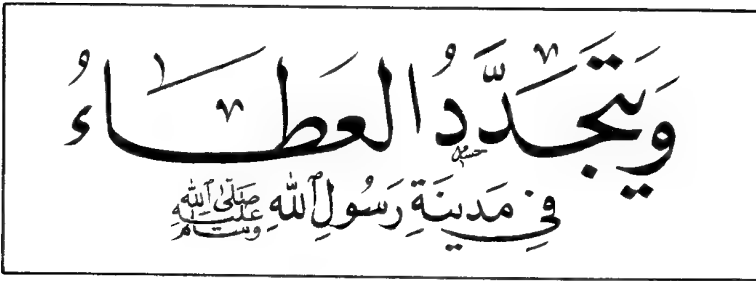 وَيَتَجَدَّدُ العَطَاءُ
فِي مَدِينَةِ رَسُولِ ٱللَّهِ صَلَّىٰ ٱللَّه عَلَيْهِ وَسَلَّم